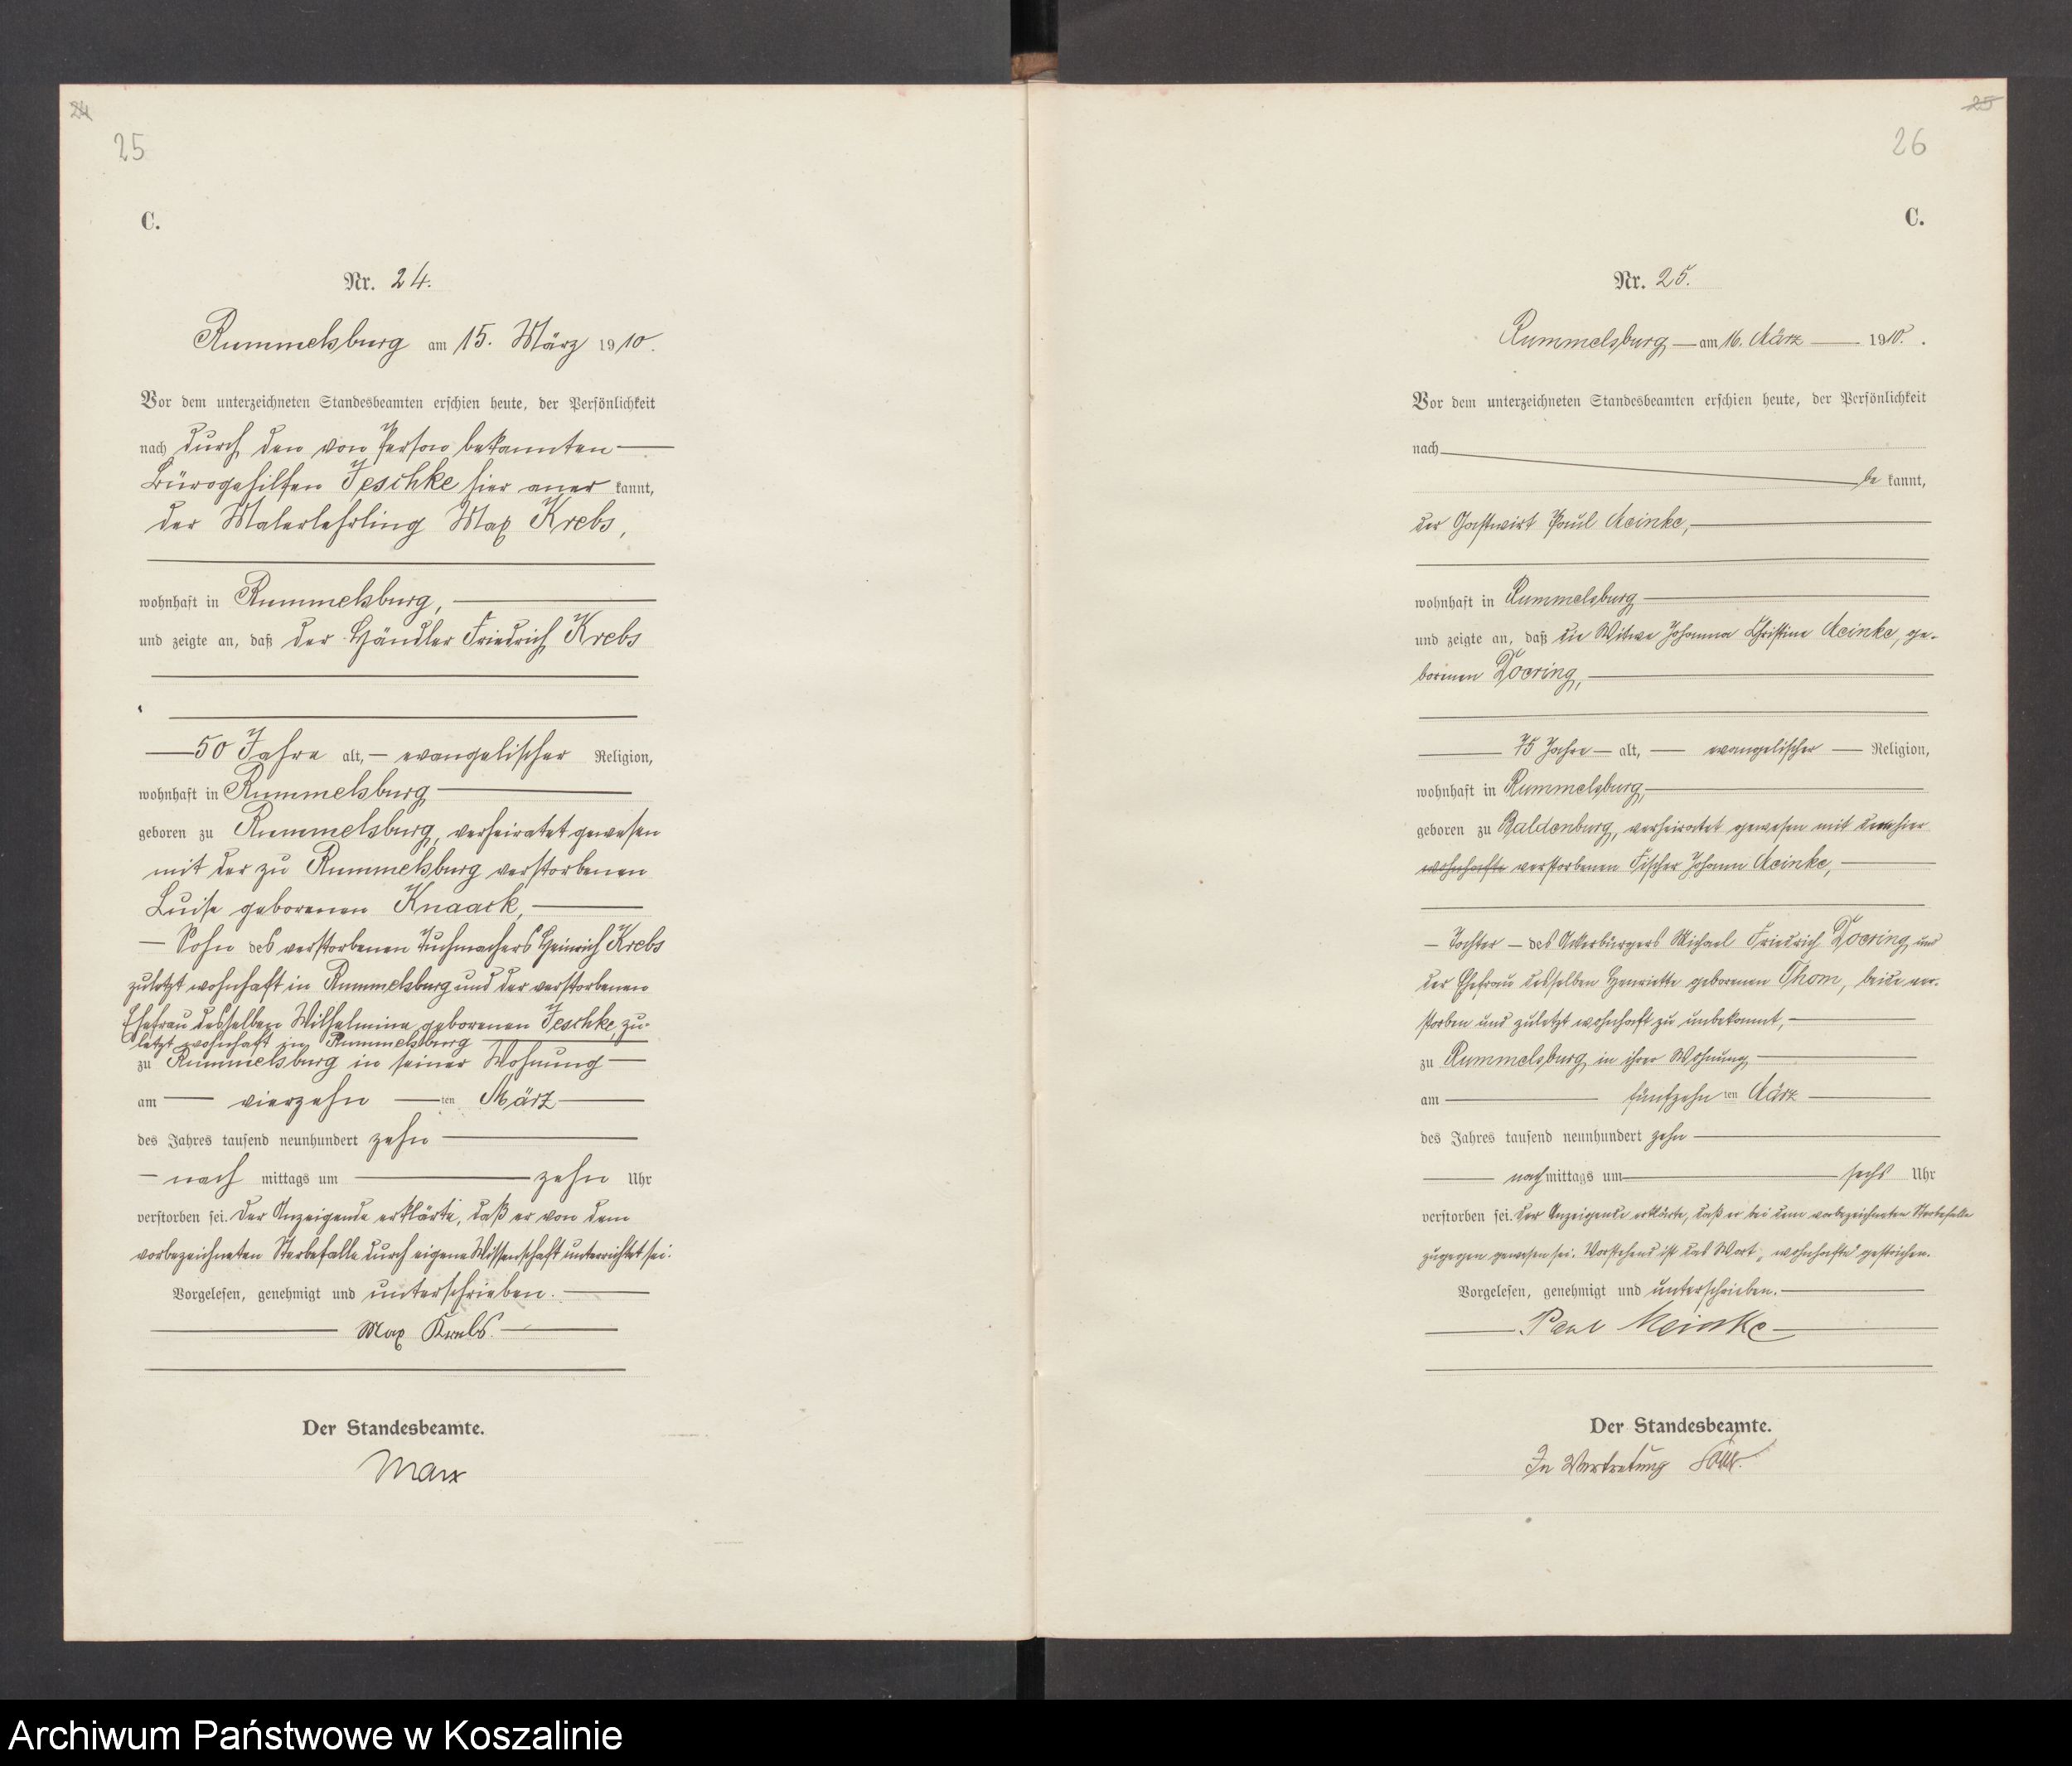 24
25
C.
Nr. 24.
Rummelsburg am 15. März 1910.
Vor dem unterzeichneten Standesbeamten erschien heute, der Persönlichkeit
nach durch den von Person bekannten
Bürogehilfen Jeschke hier aner kannt,
der Malerlehrling Max Krebs,
wohnhaft in Rummelsburg,
und zeigte an, daß der Händler Friedrich Krebs
50 Jahre alt, evangelischer Religion,
wohnhaft in Rummelsburg
geboren zu Rummelsburg, verheiratet gewesen
mit der zu Rummelsburg verstorbenen
Luise geborenen Knaack,
Sohn des verstorbenen Tuchmachers Heinrich Krebs
zuletzt wohnhaft in Rummelsburg und der verstorbenen
Ehefrau desselben Wilhelmine geborenen Jeschke, zu-
letzt wohnhaft in Rummelsburg
zu Rummelsburg in seiner Wohnung
am vierzehn ten März
des Jahres tausend neunhundert zehn
nach mittags um zehn Uhr
verstorben sei. Der Anzeigende erklärte, daß er von dem
vorbezeichneten Sterbefalle durch eigene Wissenschaft unterrichtet sei.
Vorgelesen, genehmigt und unterschrieben.
Max Krebs.
Der Standesbeamte.
Marx
25
26
C.
Nr. 25.
Rummelsburg am 16. März 1910.
Vor dem unterzeichneten Standesbeamten erschien heute, der Persönlichkeit
nach
be kannt,
der Gastwirt Paul Meinke,
wohnhaft in Rummelsburg
und zeigte an, daß die Witwe Johanna Christine Meinke, ge-
borenen Doering,
75 Jahre alt, evangelischer Religion,
wohnhaft in Rummelsburg,
geboren zu Baldenburg, verheiratet gewesen mit dem hier
wohnhafte verstorbenen Fischer Johann Meinke,
Tochter des Ackerbürgers Michael Friedrich Doering, und
der Ehefrau desselben Henriette geborenen Thom, beide ver-
storben und zuletzt wohnhaft zu unbekannt,
zu Rummelsburg, in ihrer Wohnung,
am fünfzehn ten März
des Jahres tausend neunhundert zehn
nach mittags um sechs Uhr
verstorben sei. Der Anzeigende erklärte, daß er bei dem vorbezeichneten Sterbefalle
zugegen gewesen sei. Vorstehend ist das Wort „wohnhafte" gestrichen.
Vorgelesen, genehmigt und unterschrieben.
Paul Meinke
Der Standesbeamte.
In Vertretung
Archiwum Państwowe w Koszalinie